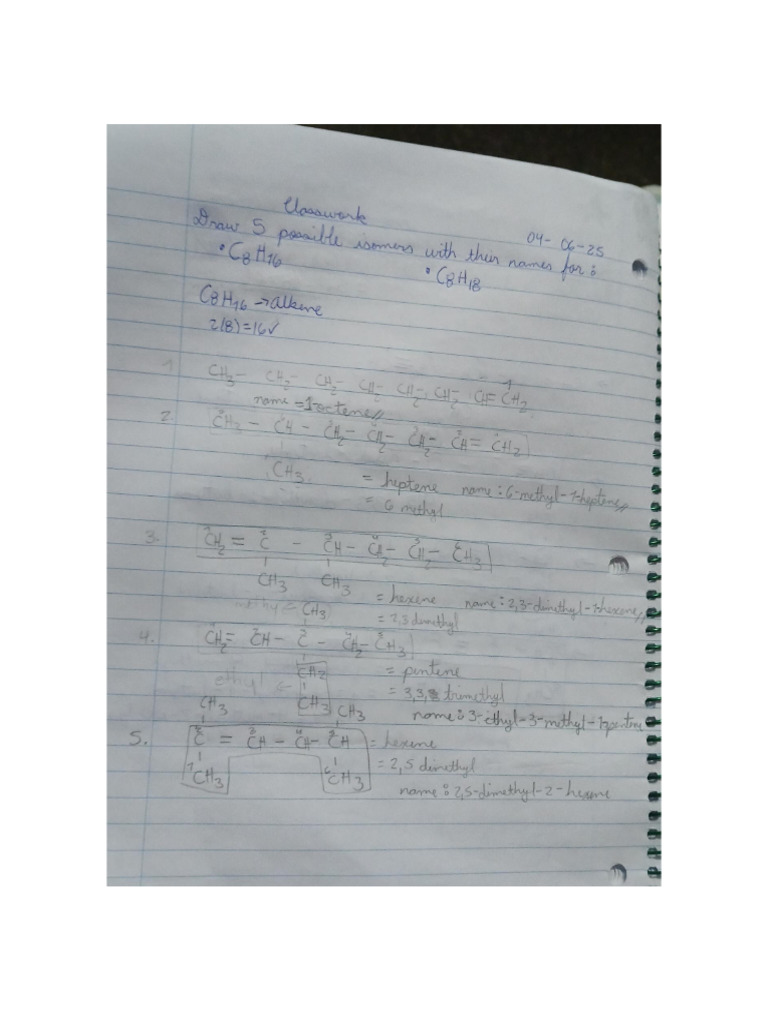 Classwork
04-06-25
Draw 5 possible isomers with their names for:
• C8H16 • C8H18
C8H16 → alkene
2(8)=16✓
1 CH3- CH2- CH2- CH2- CH2- CH2 CH= CH2
name = 1-octene//
2. CH3 - CH - CH2- CH2- CH2- CH= CH2
CH3
= heptene name: 6-methyl-1-heptene//
= 6 methyl
3. CH2 = C - CH- CH2- CH2- CH3
CH3 CH3
= hexene name: 2,3-dimethyl-1-hexene//
= 2,3 dimethyl
methyl ← CH3
4. CH2= CH- C - CH2- CH3
CH2
= pentene
ethyl ← CH3
= 3,3, trimethyl
name: 3-ethyl-3-methyl-1-pentene
CH3 CH3
5. C = CH - CH- CH = hexene
CH3 CH3
= 2,5 dimethyl
name: 2,5-dimethyl-2-hexene